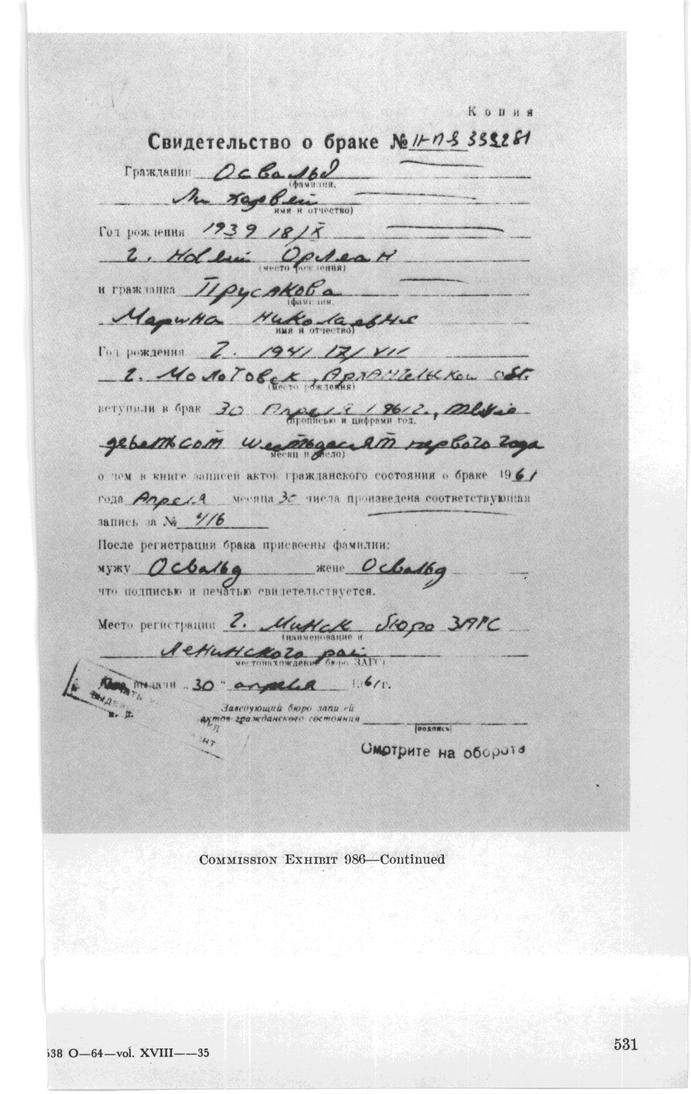 Копия
Свидетельство о браке № II-ПЯ 332281
Гражданин Освальд
(фамилия,
Ли Харвей
имя и отчество)
Год рождения 1939 18/X
г. Новый Орлеан
(место рождения)
и гражданка Прусакова
(фамилия,
Марина Николаевна
имя и отчество)
Год рождения г. 1941 17/VII
г. Молотовск, Архангельской обл.
(место рождения)
вступили в брак 30 Апреля 1961г.,
(прописью и цифрами год,
девятьсот шестьдесят первого года
месяц и число)
о чем в книге записей актов гражданского состояния о браке 1961
года Апреля месяца 30 числа произведена соответствующая
запись за № 416
После регистрации брака присвоены фамилии:
мужу Освальд жене Освальд
что подписью и печатью свидетельствуется.
Место регистрации г. Минск бюро ЗАГС
(наименование и
Ленинского рай
местонахождение бюро ЗАГС)
выдачи „30" апреля 1961г.
Заведующий бюро записей
актов гражданского состояния
(подпись)
Смотрите на обороте
Commission Exhibit 986—Continued
531
38 O—64—vol. XVIII——35